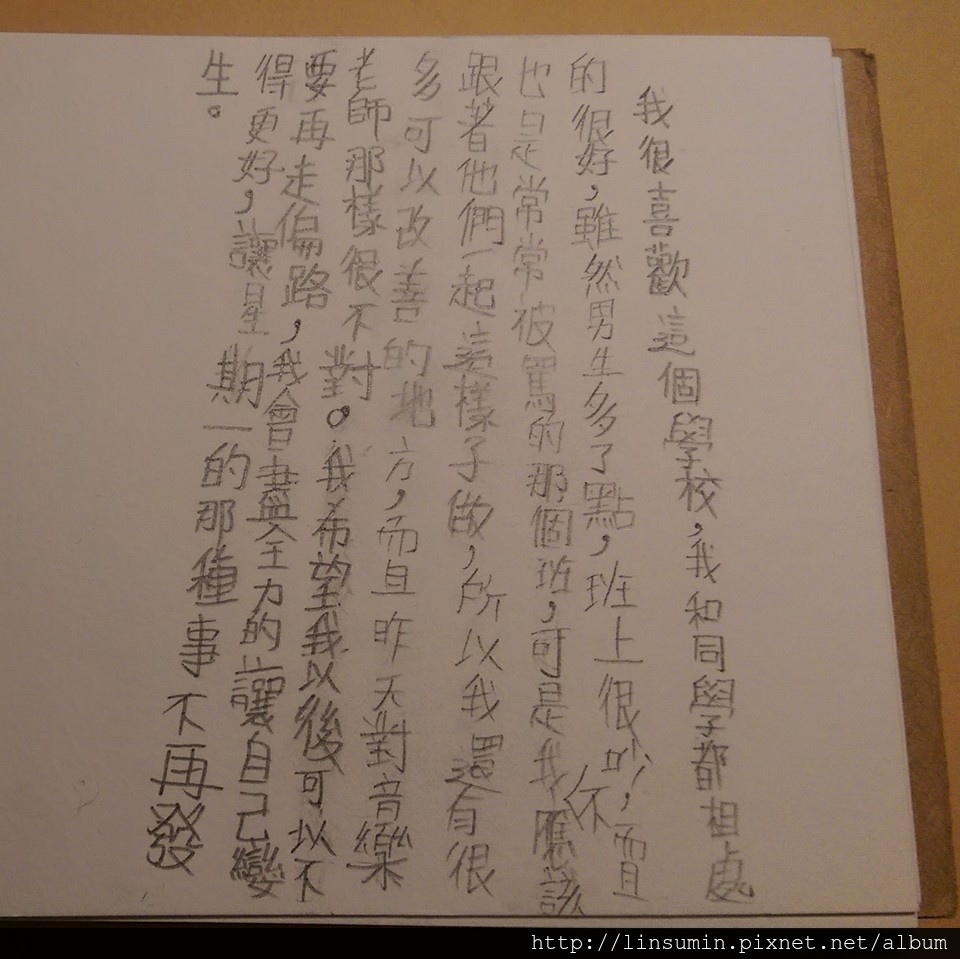 我很喜歡這個學校，我和同學都相處
的很好，雖然男生多了點，班上很吵，而且
也是常常被罵的那個班，可是我不應該
跟著他們一起這樣子做，所以我還有很
多可以改善的地方，而且昨天對音樂
老師那樣很不對。我希望我以後可以不
要再走偏路，我會盡全力的讓自己變
得更好，讓星期一的那種事不再發
生。
http://linsumin.pixnet.net/album